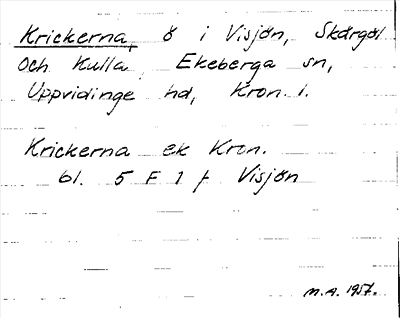 Krickerna, ö i Visjön, Skärgöl
och Kulla, Ekeberga sn,
Uppvidinge hd, Kron. l.
Krickerna ek Kron.
bl. 5 F 1 f Visjön
M.A. 1957.